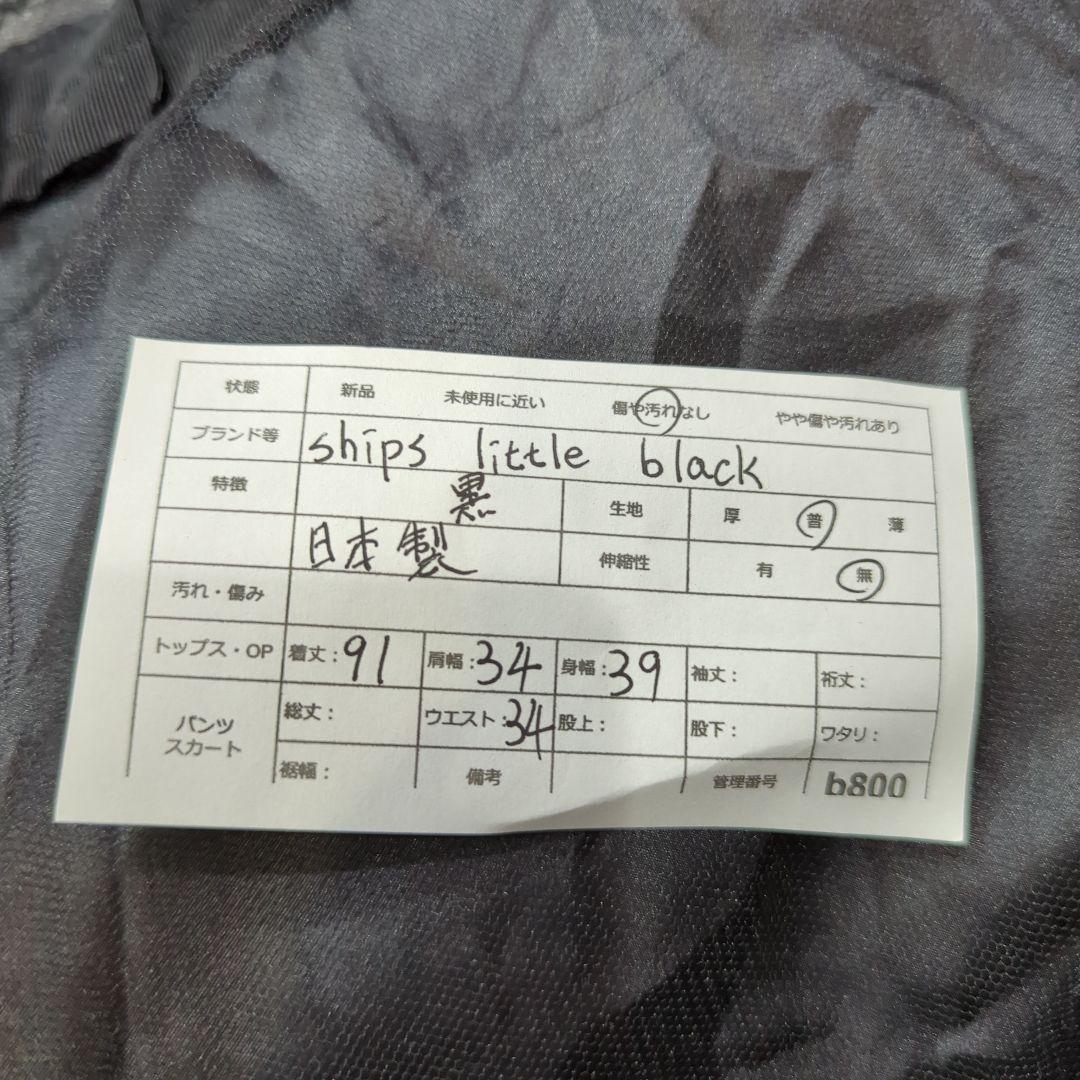 状態 新品 未使用に近い 傷や汚れなし やや傷や汚れあり
ブランド等 ships little black
特徴 黒 生地 厚 普 薄
日本製 伸縮性 有 無
汚れ・傷み
トップス・OP 着丈：91 肩幅：34 身幅：39 袖丈： 裄丈：
パンツ スカート 総丈： ウエスト：34 股上： 股下： ワタリ：
裾幅： 備考 管理番号 b800